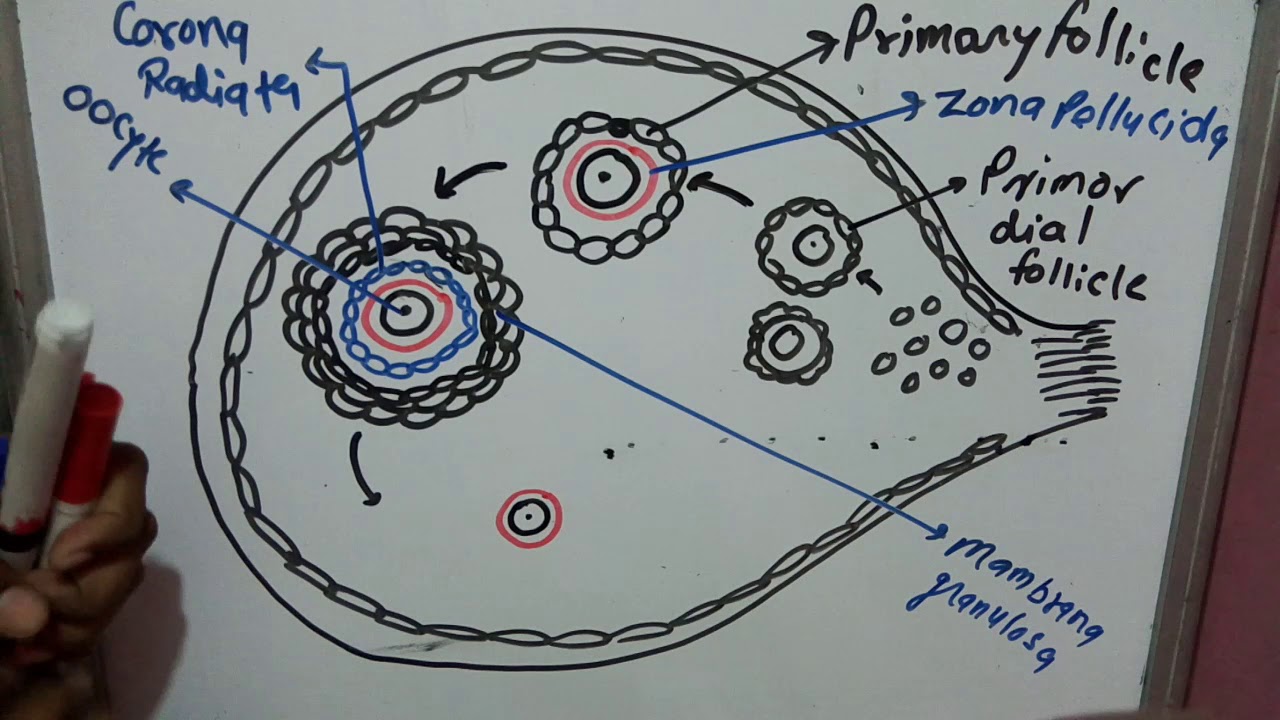 Corona
Radiata
Oocyte
Primary follicle
Zona Pellucida
Primor
dial
follicle
Mambrana
granulosa